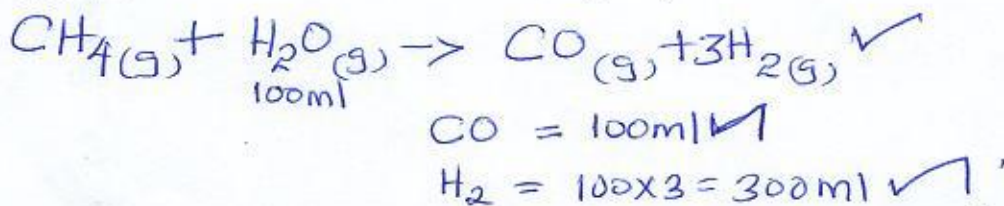 CH₄(g) + H₂O(g) -> CO(g) + 3H₂(g) ✓
100ml
CO = 100ml ✓
H₂ = 100x3 = 300ml ✓